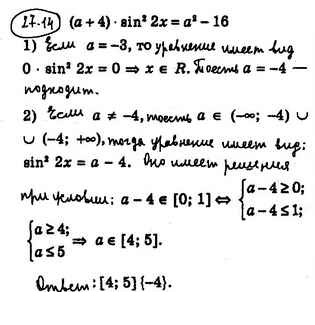 27.14 (a + 4) · sin² 2x = a² – 16
1) Если a = –3, то уравнение имеет вид
0 · sin² 2x = 0 ⇒ x ∈ R. То есть a = –4 —
подходит.
2) Если a ≠ –4, то есть a ∈ (–∞; –4) ∪
∪ (–4; +∞), тогда уравнение имеет вид:
sin² 2x = a – 4. Оно имеет решения
при условии: a – 4 ∈ [0; 1] ⇔ { a – 4 ≥ 0; a – 4 ≤ 1;
{ a ≥ 4; a ≤ 5 ⇒ a ∈ [4; 5].
Ответ: [4; 5] {–4}.